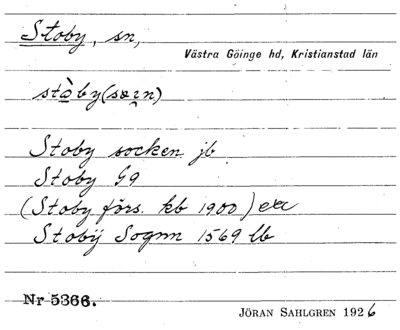 Stoby, sn,
Västra Göinge hd, Kristianstad län
Stoby socken jb
Stoby G9
(Stoby förs. kb 1900) exc
Stobÿ Sognn 1569 lb
Nr 5366.
JÖRAN SAHLGREN 1926